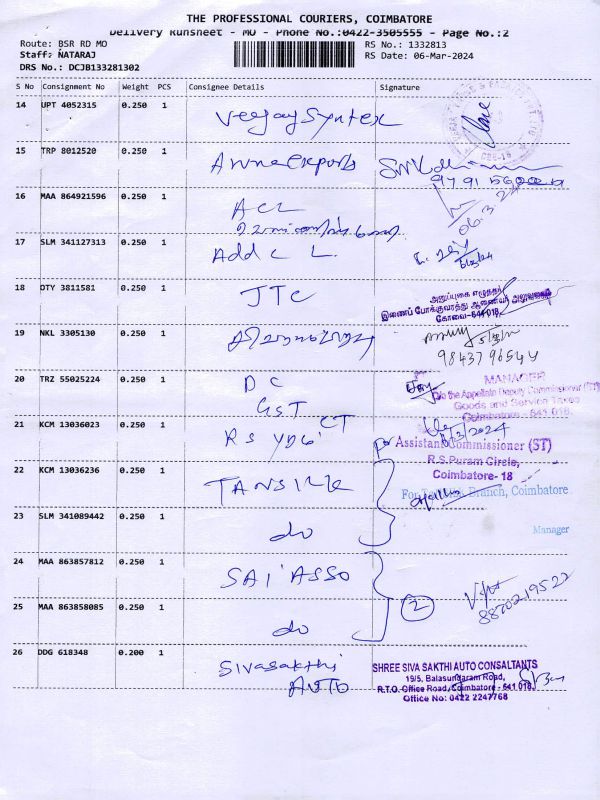 THE PROFESSIONAL COURIERS, COIMBATORE
Delivery Runsheet - MO - Phone No.:0422-3505555 - Page No.:2
Route: BSR RD MO
Staff: NATARAJ
DRS No.: DCJB133281302
RS No.: 1332813
RS Date: 06-Mar-2024
S No Consignment No Weight PCS Consignee Details Signature
14 UPT 4052315 0.250 1 Veejay Syntex
15 TRP 8012520 0.250 1 Exports
16 MAA 864921596 0.250 1 ACL
17 SLM 341127313 0.250 1 Add C L.
18 OTY 3811581 0.250 1 JTC
அனுப்புகை எழுத்தர்
இணைப் போக்குவரத்து ஆணையர் அலுவலகம்
கோவை-641 018.
19 NKL 3305130 0.250 1
98437 96544
20 TRZ 55025224 0.250 1 DC
GST
MANAGER
O/o the Appellate Deputy Commissioner (ST)
Goods and Service Taxes
Coimbatore - 641 018.
21 KCM 13036023 0.250 1 RS CT
for Assistant Commissioner (ST)
R.S.Puram Circle,
Coimbatore- 18
22 KCM 13036236 0.250 1 TANSILK
Branch, Coimbatore
23 SLM 341089442 0.250 1 do
Manager
24 MAA 863857812 0.250 1 SAI ASSO
25 MAA 863858085 0.250 1 do
2
8870219522
26 DDG 618348 0.200 1 Sivasakthi
AUTO
SHREE SIVA SAKTHI AUTO CONSALTANTS
19/5, Balasundaram Road,
R.T.O. Office Road, Coimbatore - 641 018.
Office No: 0422 2247768